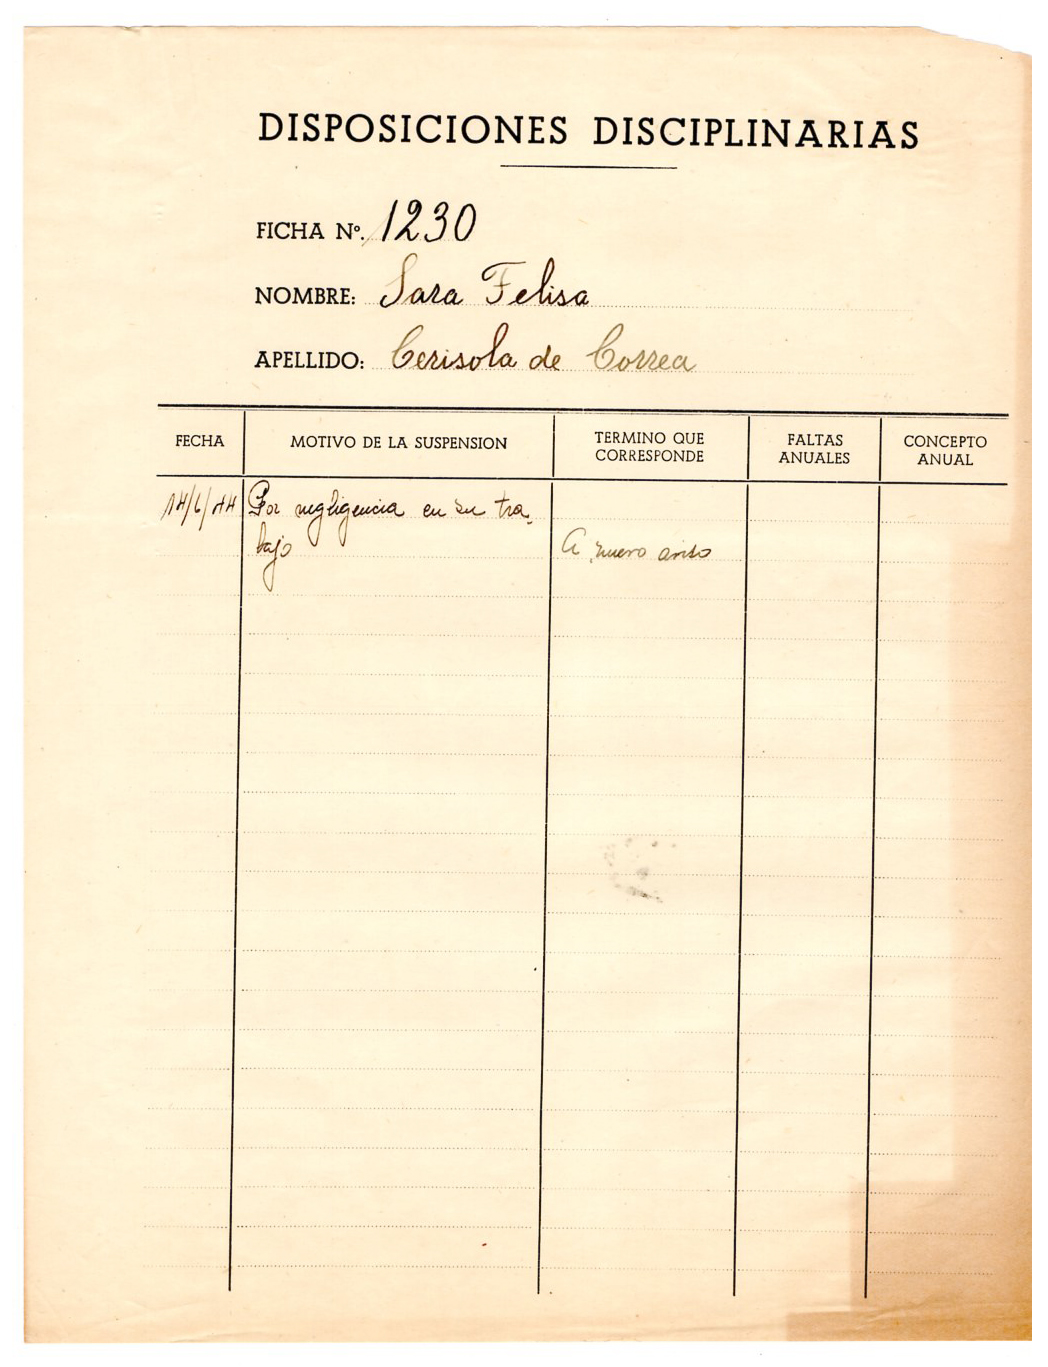 DISPOSICIONES DISCIPLINARIAS
FICHA Nº. 1230
NOMBRE: Sara Felisa
APELLIDO: Cerisola de Correa
FECHA MOTIVO DE LA SUSPENSION TERMINO QUE CORRESPONDE FALTAS ANUALES CONCEPTO ANUAL
14/6/44 Por negligencia en su tra-
bajo A nuevo aviso